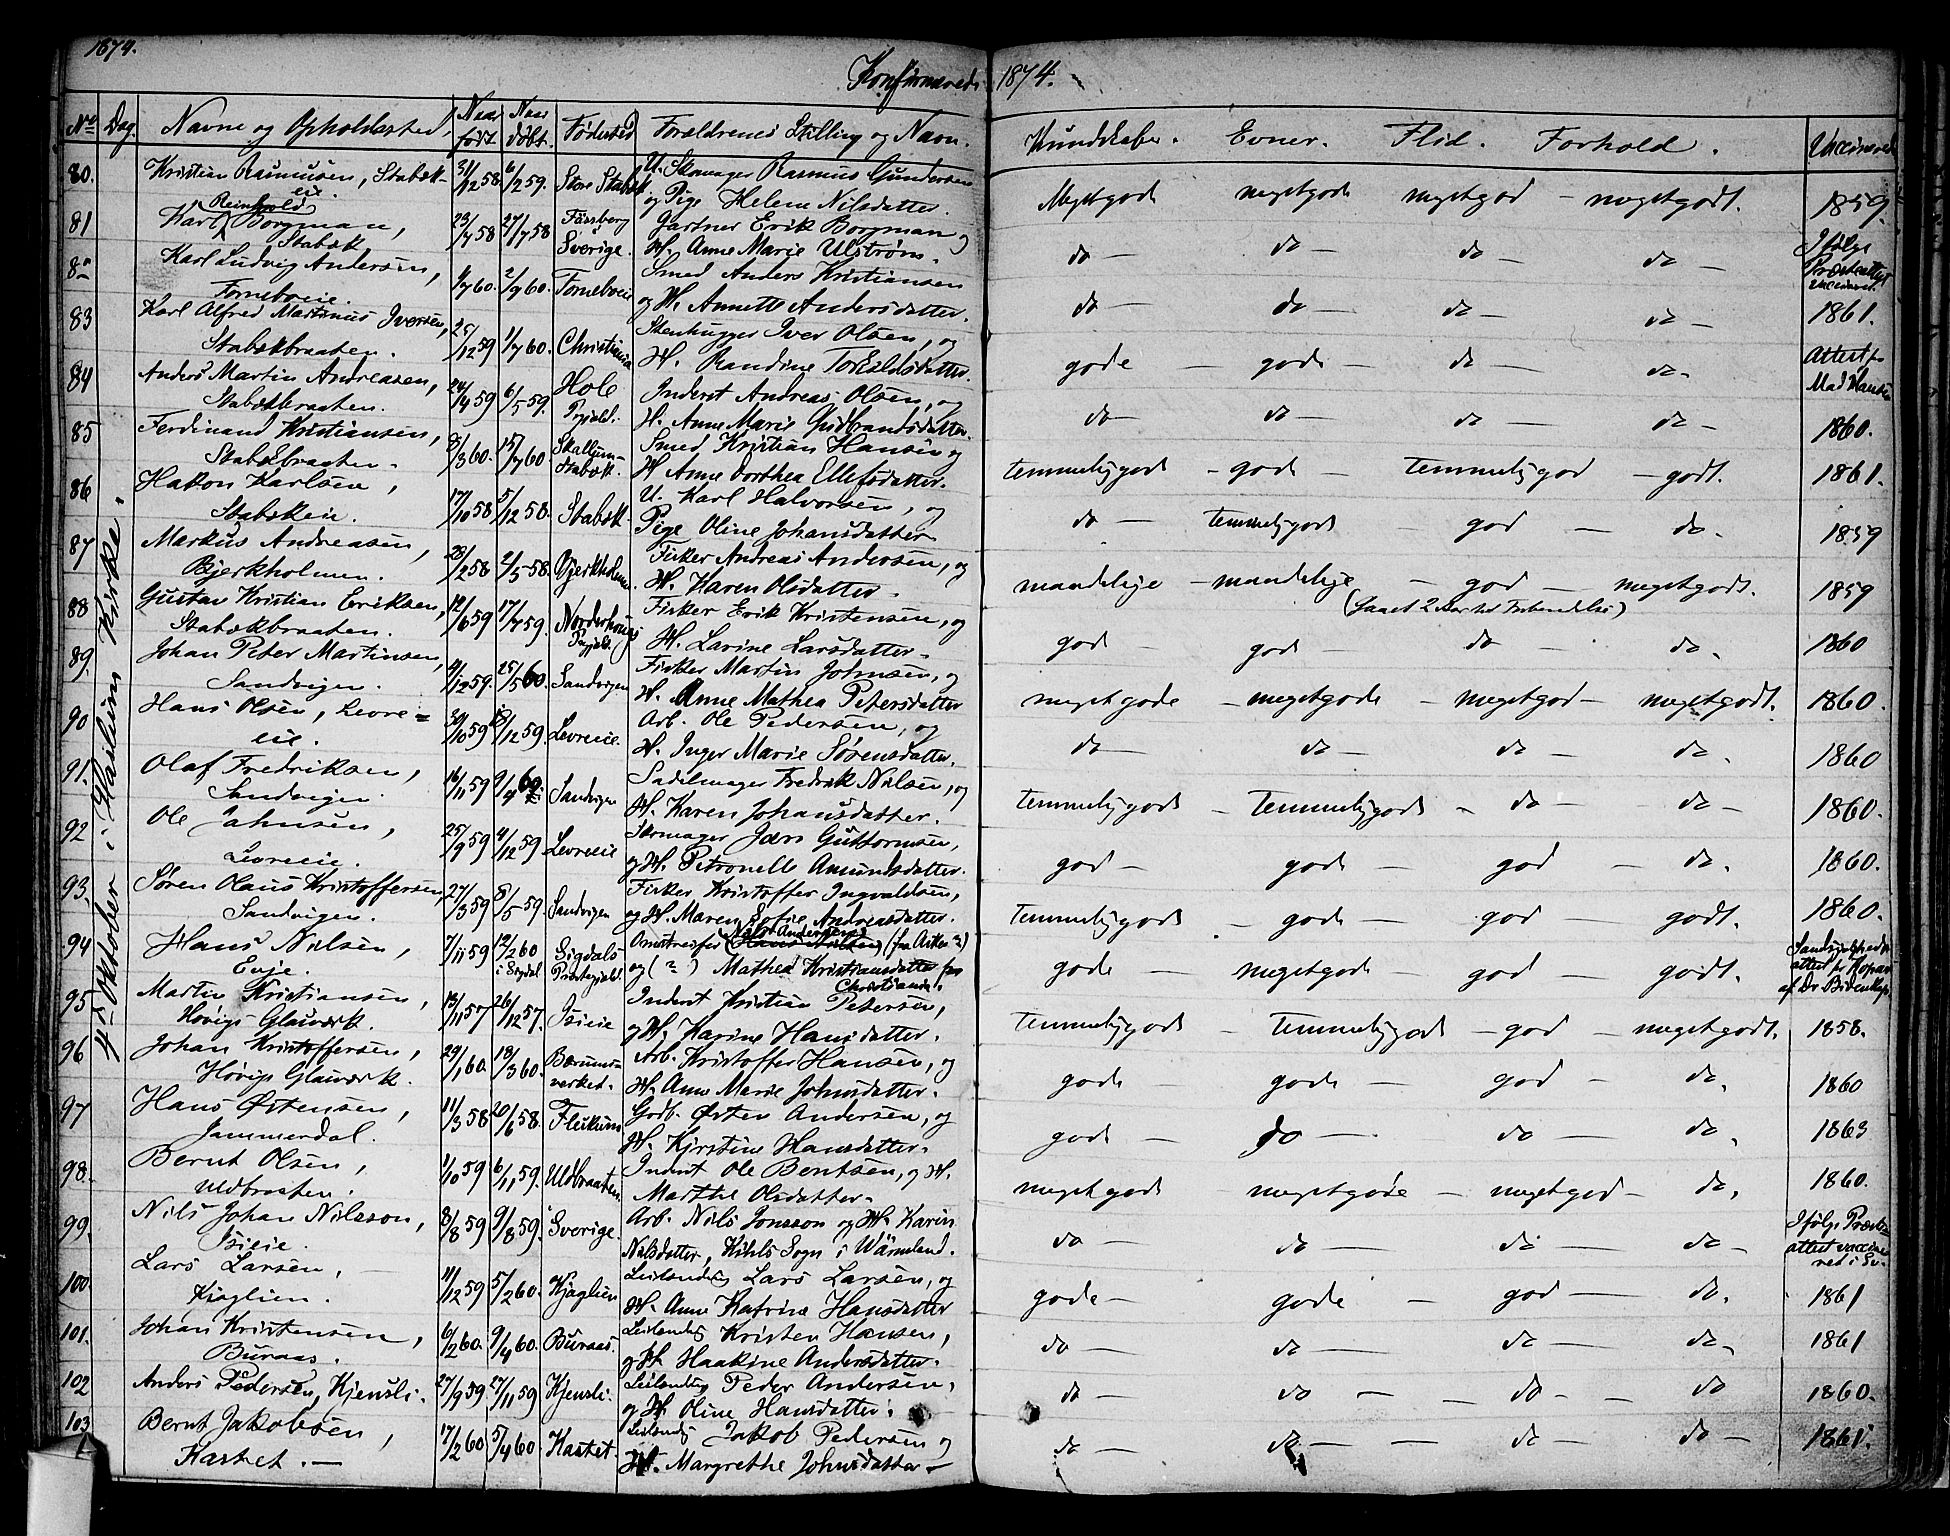 1874.
Konfirmerede 1874.
No Dag. Navne og Opholdssted. Naar født. Naar døbt. Fødested Forældrenes Stilling og Navn. Kundskaber. Evner. Flid. Forhold. Vaccinerede
4de Oktober i Haslum Kirke.
80. Kristian Rasmusen, Stabæk- 31/12 58. 6/2 59. Store Stabæk U. Skomager Rasmus Gundersen Megetgode megetgode megetgod – megetgodt. 1859.
eie og Pige Helene Nilsdatter.
81 Karl Reinhold Borgman, 23/7 58 27/7 58 Färsberg Gartner Erik Borgman og do – do – do – do – Ifølge
Stabæk. Sverige. H. Anne Marie Ulstrøm. Præsteattest vaccineret.
82 Karl Ludvig Andersen, 1/7 60. 2/9 60. Torneboeie Smed Anders Kristiansen do – do – do – do – 1861.
Forneboeie. og H. Annette Andersdatter.
83 Karl Alfred Martinius Iversen, 25/12 59 1/7 60. Christiania Stenhugger Iver Olsen, og gode – gode – do – do. Attest fr
Stabækbraaten. H. Randine Torkildsdatter. Mad Hansen
84 Anders Martin Andreasen, 24/4 59 6/5 59. Hole Inderst Andreas Olsen, og do – do – do – do – 1860.
Stabækbraaten. Prgjeld. H. Anne Marie Gudbrandsdatter.
85 Ferdinand Kristiansen, 8/3 60. 15/7 60 Skallum- Smed Kristian Hansen og temmeliggode – gode – temmeliggod – godt. 1861.
Stabækbraaten. stabæk. H Anne Dorthea Ellefsdatter.
86 Hakon Karlsen, 17/10 58 5/12 58. Stabæk. U. Karl Halvorsen, og do – temmeliggode – god – do. 1859
Stabækeie. Pige Oline Johansdatter
87 Markus Andreasen, 28/2 58 2/5 58. Bjerkholmen Fisker Andreas Andersen, og maadelige – maadelige – god – megetgodt. 1859
Bjerkholmen. H. Karen Olsdatter. (Gaaet 2 Aar til Forberedelse)
88 Gustav Kristian Eriksen, 12/6 59 17/7 59. Norderhougs Fisker Erik Kristensen, og gode – gode – do – do. 1860
Stabækbraaten. Prgjeld. H. Larine Larsdatter.
89. Johan Peter Martinsen, 4/12 59. 25/5 60. Sandvigen Fisker Martin Johnsen, og megetgode – megetgode – megetgod – megetgodt. 1860.
Sandvigen. H. Anne Mathea Petersdatter
90 Hans Olsen, Levre= 30/10 59 18/12 59. Levreeie. Arb. Ole Pedersen, og do – do – do – do. 1860
eie. H. Inger Marie Sørensdatter.
91. Olaf Fredriksen, 16/11 59 9/4 60. Sandvigen Sadelmager Fredrik Nilsen, og temmeliggode – temmeliggode – do – do – 1860.
Sandvigen. H. Karen Johansdatter.
92 Ole Jahnsen, 25/9 59 4/12 59. Levreeie Skomager Jøns Guttormsen, god – gode – god – do. 1860.
Levreeie. og H. Petronelle Amundsdatter.
93. Søren Olaus Kristoffersen 27/3 59 8/5 59. Sandvigen Fisker Kristoffer Ingvaldsen, temmeliggode – gode – god – godt. 1860.
Sandvigen. og H. Maren Sofie Andreasdatter.
94 Hans Nilsen, 7/11 59 12/2 60 i Sigdal Sigdals Omstreifer Nils Andersen (Hans Nilsen) (fra Asker?) gode – megetgode god – godt. Sandsynligheds
Evje. Præstegjeld. og ( ? ) Mathea Kristiansdatter fra Christiania. attest for Kopper af Dr Bidenkap
95 Martin Kristiansen, 13/11 57 26/12 57. Isieie Inderst Kristian Petersen, temmeliggode – temmeliggode – god – megetgodt. 1858.
Høvigs Glasværk. og H. Karine Hansdatter.
96 Johan Kristoffersen, 29/1 60. 18/3 60. Bærums- Arb. Kristoffer Hansen, og gode gode – god – do. 1860
Høvigs Glasværk. verket. H. Anne Marie Johnsdatter.
97 Hans Østensen, 11/3 58 20/6 58. Fleskum Godb. Østen Andersen, og gode – do –. do – do. 1863
Jammerdal. H. Kjerstine Hansdatter.
98. Bernt Olsen, 1/10 59 6/11 59. Uldbraaten. Inderst Ole Bentsen, og H. megetgode megetgode – megetgod – do. 1860.
Uldbraaten. Marthe Olsdatter.
99. Nils Johan Nilsson, 8/8 59 9/8 59. Sverige. Arb. Nils Jonsson og H. Karin do – do – do – do – Ifølge Præste-
Isieie. Nilsdatter, Kihls Sogn i Wärmland. attest vaccineret i Sv.
100. Lars Larsen, 11/12 59 5/2 60. Kjaglien Leilænding Lars Larsen, og gode – gode – god – do. 1861
Kjaglien. H. Anne Katrine Hansdatter
101. Johan Kristensen, 6/2 60. 9/4 60. Buraas. Leilænding Kristen Hansen, do – do – do – do. 1861
Buraas. og H. Haakine Andersdatter.
102 Anders Pedersen, Kjensli. 27/9 59. 27/11 59 Kjensli. Leilænding Peder Andersen, do – do – do – do 1860.
og H. Oline Hansdatter.
103 Bernt Jakobsen, 17/2 60 5/4 60. Kastet. Leilænding Jakob Pedersen og do – do – do – do – 1861.
Kastet. – H. Margrethe Johnsdatter –